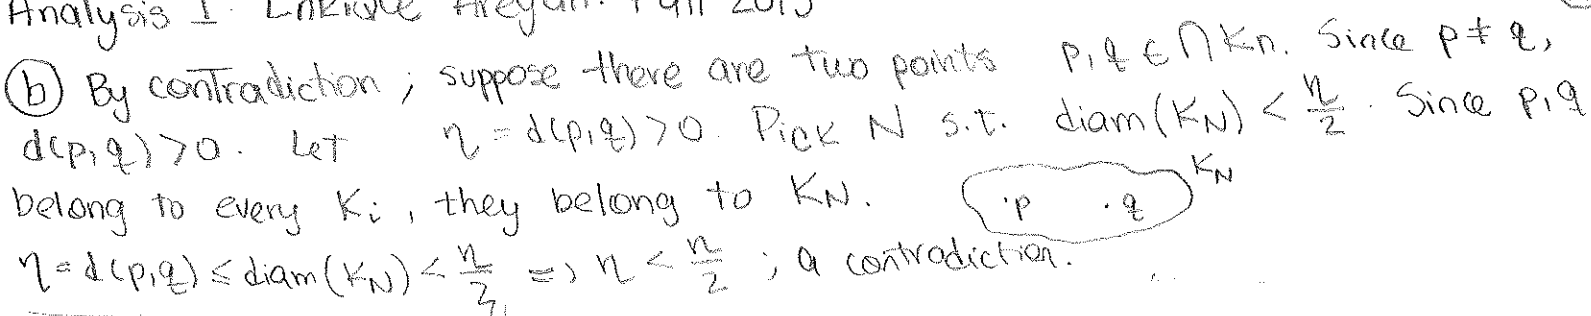 Analysis I. Enrique Areyan. Fall 2015
(b) By contradiction; suppose there are two points p,q ∈ ⋂Kn. Since p≠q,
d(p,q)>0. Let η = d(p,q)>0. Pick N s.t. diam(K_N) < η/2. Since p,q
belong to every Ki, they belong to K_N. ·p ·q K_N
η=d(p,q) ≤ diam(K_N) < η/2 => η < η/2; a contradiction.